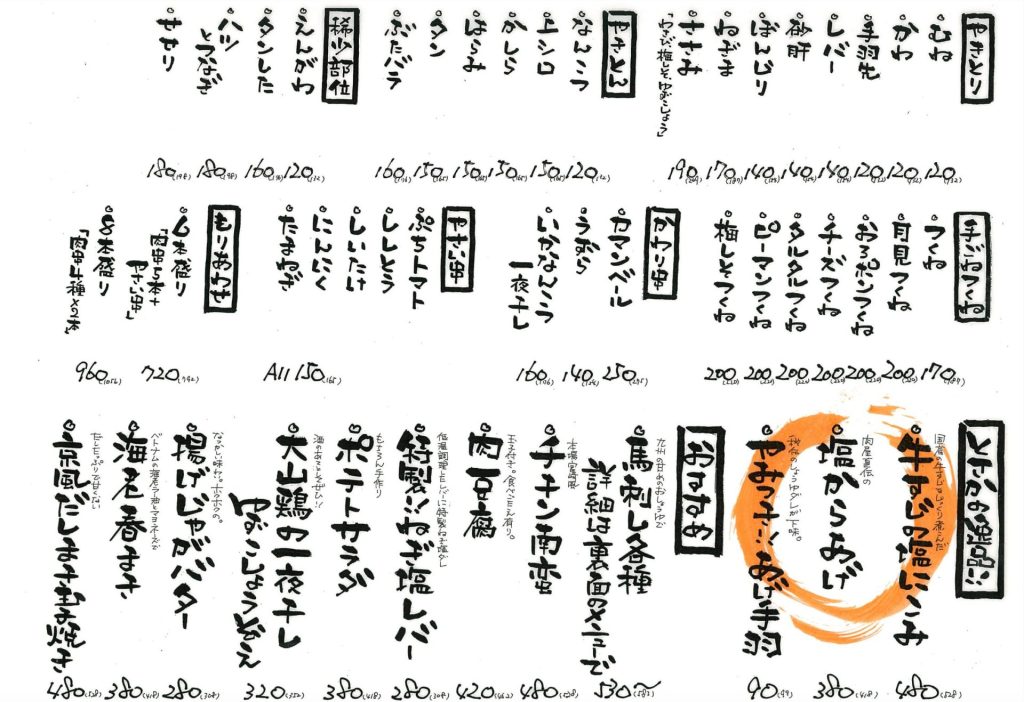 やきとり
むね 120(132)
かわ 120(132)
手羽先 120(132)
レバー 140(154)
砂肝 140(154)
ぼんじり 140(154)
ねぎま 170(187)
ささみ 190(209)
「わさび、梅しそ、ゆずこしょう」
やきとん
なんこつ 120(132)
上シロ 150(165)
かしら 150(165)
はらみ 150(165)
タン 150(165)
ぶたバラ 160(176)
稀少部位
えんがわ 120(132)
タンした 160(176)
ハツ
とつなぎ 180(198)
せせり 180(198)
手ごねつくね
つくね 170(187)
月見つくね 200(220)
おろポンつくね 200(220)
チーズつくね 200(220)
タルタルつくね 200(220)
ピーマンつくね 200(220)
梅しそつくね 200(220)
かわり串
カマンベール 250(275)
うずら 140(154)
いかなんこつ
一夜干し 160(176)
やさい串
ぷちトマト
ししとう
しいたけ
にんにく
たまねぎ
All 150(165)
もりあわせ
6本盛り 720(792)
「肉串5本+
やさい串」
8本盛り 960(1056)
「肉串4種×2本」
とりかの逸品!!
国産の牛すじをじっくり煮こんだ
牛すじの塩にこみ 480(528)
肉屋直伝の
塩からあげ 380(418)
秘伝のしょうゆダレが下味。
やみつき!!あげ手羽 90(99)
おすすめ
九州の甘めのおしょうゆで
馬刺し各種
詳細は裏面のメニューで 530~(583)
本場宮崎風
チキン南蛮 480(528)
玉子付き。食べごたえ有り。
肉豆腐 420(462)
低温調理したレバーに特製ねぎ塩ダレ
特製!!ねぎ塩レバー 280(308)
もちろん手作り
ポテトサラダ 380(418)
酒のあてにぜひ!!
大山鶏の一夜干し
ゆずこしょうぞえ 320(352)
なつかしい味わい。ホクホクの。
揚げじゃがバター 280(308)
ベトナムの海老ラー油とマヨネーズで
海老春まき 380(418)
だしたっぷりで甘くない
京風だしまき玉子焼き 480(528)